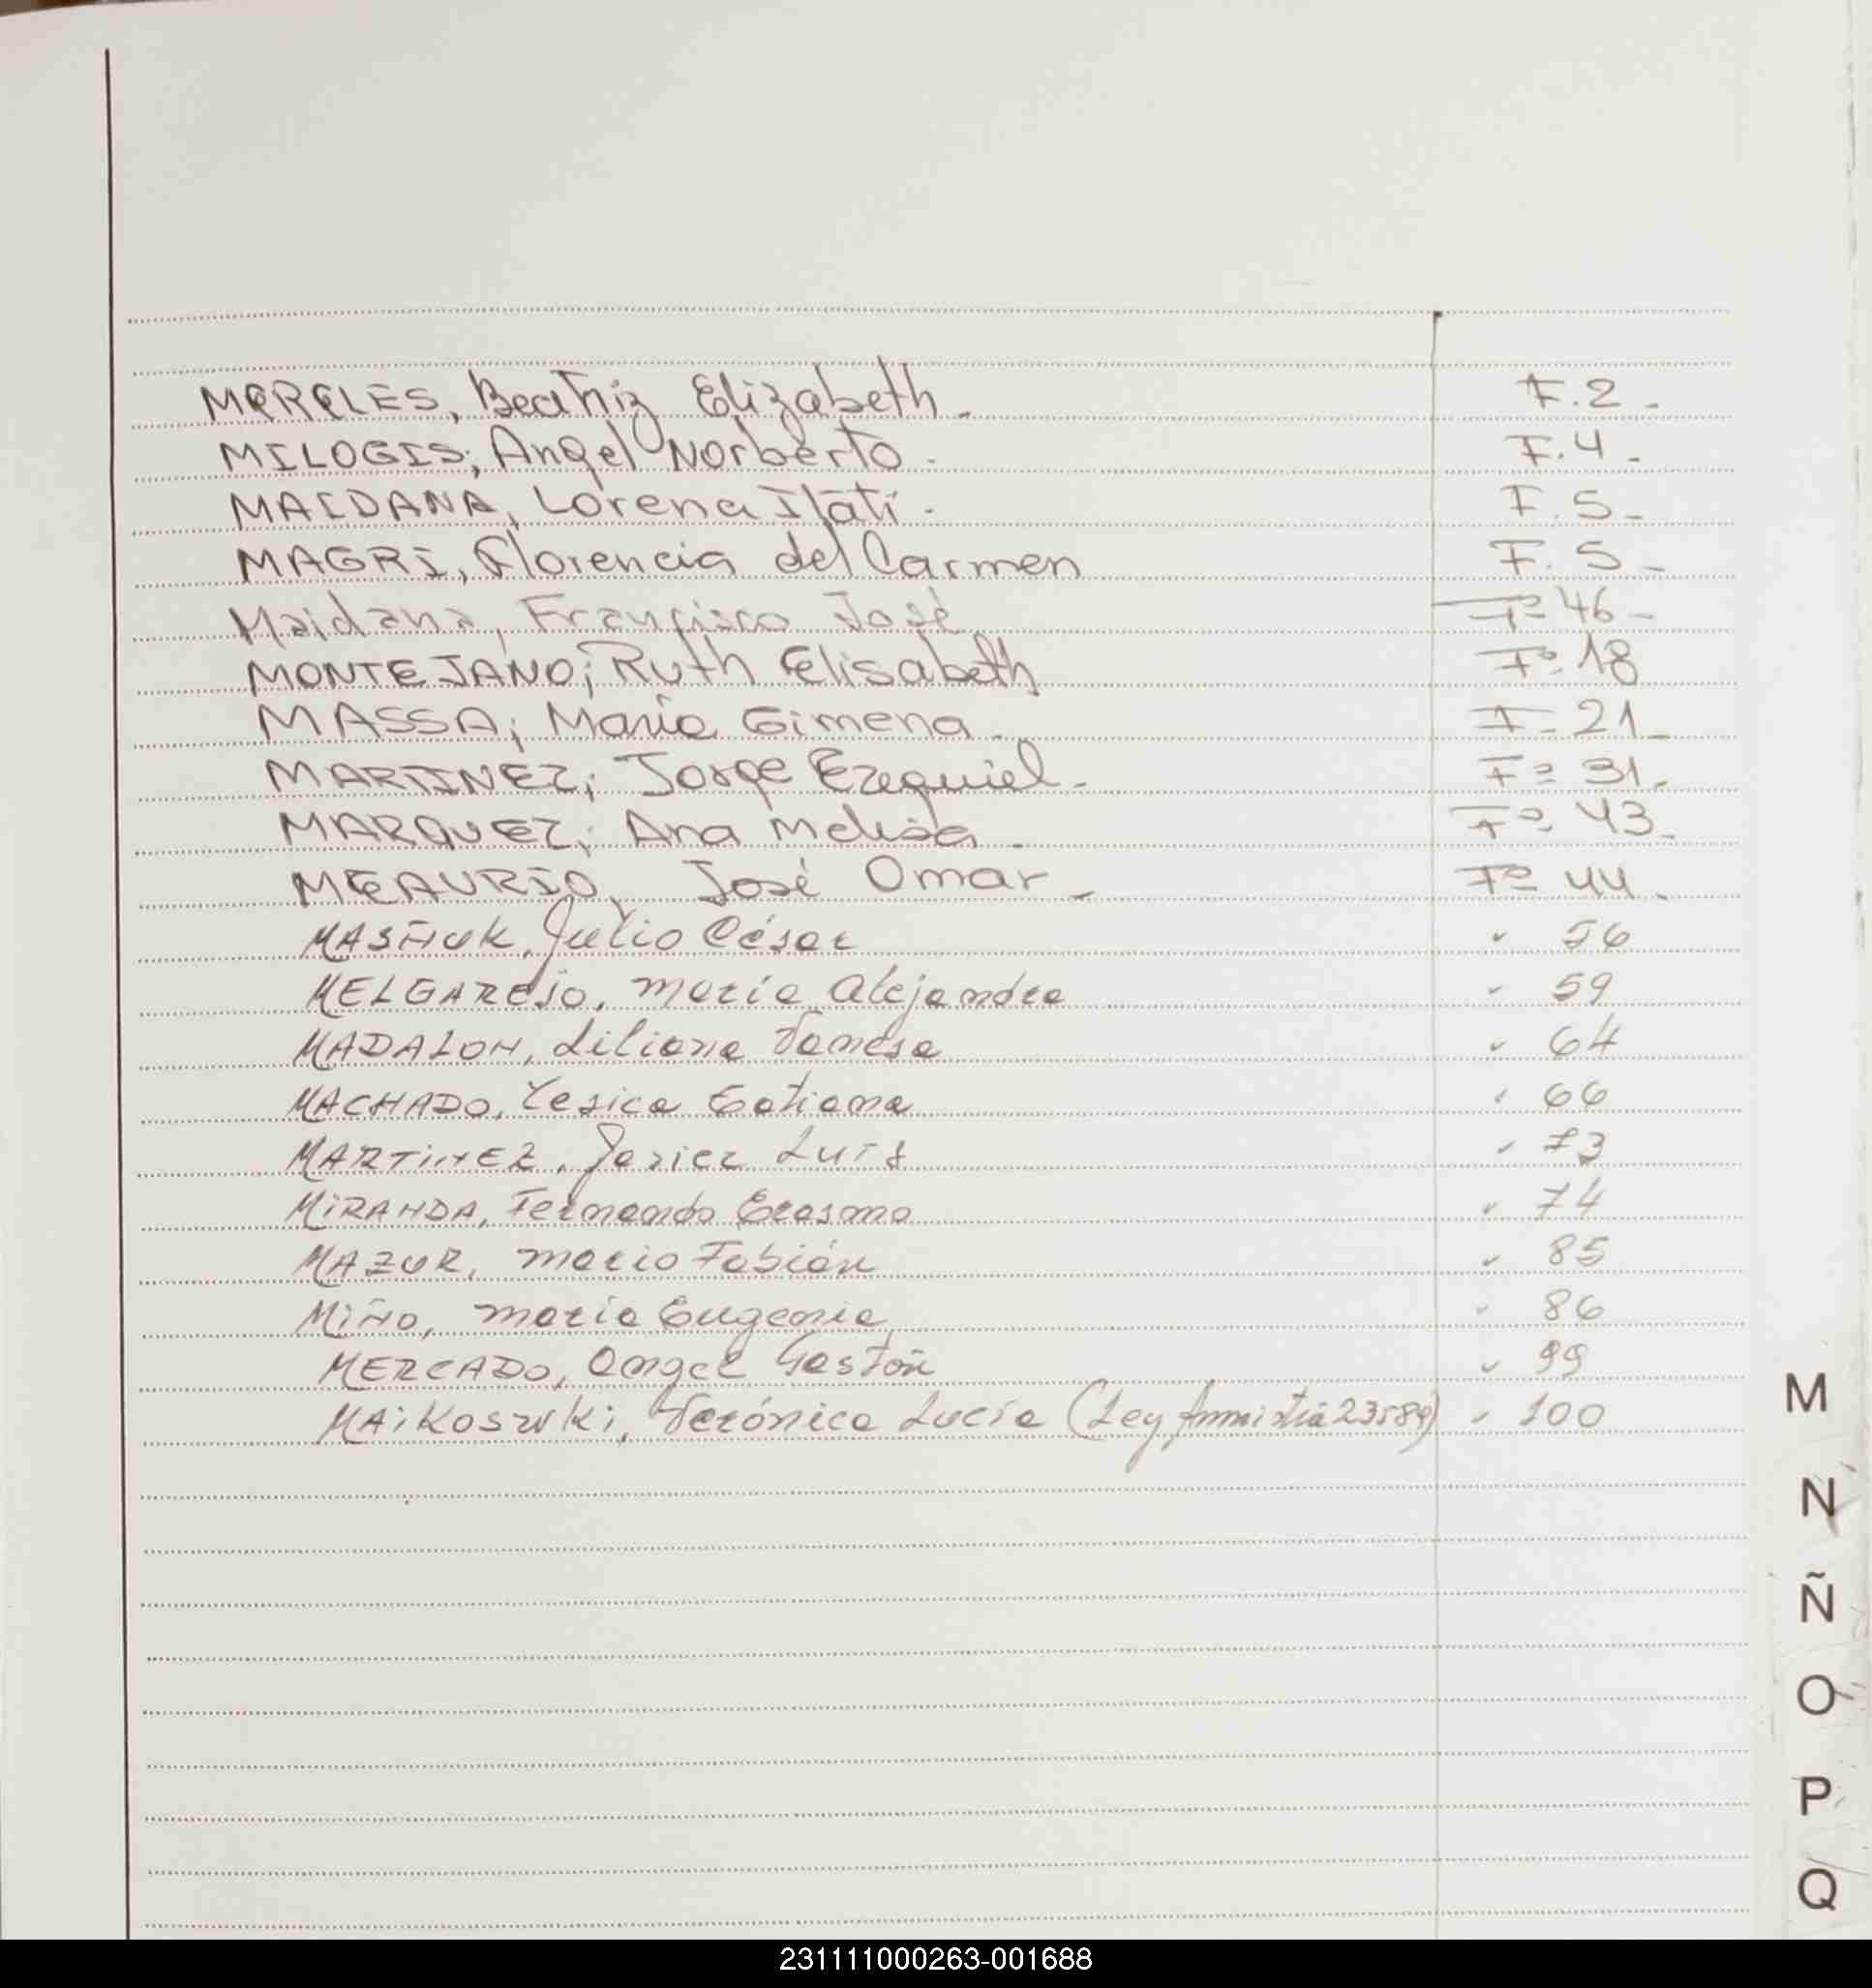 MERELES, Beatriz Elizabeth. F. 2.
MILOGIS; Angel Norberto. F. 4.
MAIDANA, Lorena Itatí. F. 5.
MAGRI, Florencia del Carmen F. 5.
Maidana, Francisco José Fº 46.
MONTEJANO; Ruth Elisabeth Fº 18
MASSA; María Gimena. F. 21.
MARTINEZ; Jorge Ezequiel. Fº 31.
MARQUEZ; Ana Melisa. Fº 43.
MEAURIO, José Omar. Fº 44.
MASÑUK, Julio César " 56
MELGAREJO, María Alejandra " 59
MADALON, Liliana Vanesa " 64
MACHADO, Yesica Tatiana " 66
MARTINEZ, Javier Luis " 73
MiRANDA, Fernando Erasmo " 74
MAZUR, Mario Fabián " 85
MiÑO, María Eugenia " 86
MERCADO, Angel Gastón " 99
MAiKOSWKi, Verónica Lucía (Ley Amnistía 23589) " 100
M
N
Ñ
O
P
Q
231111000263-001688